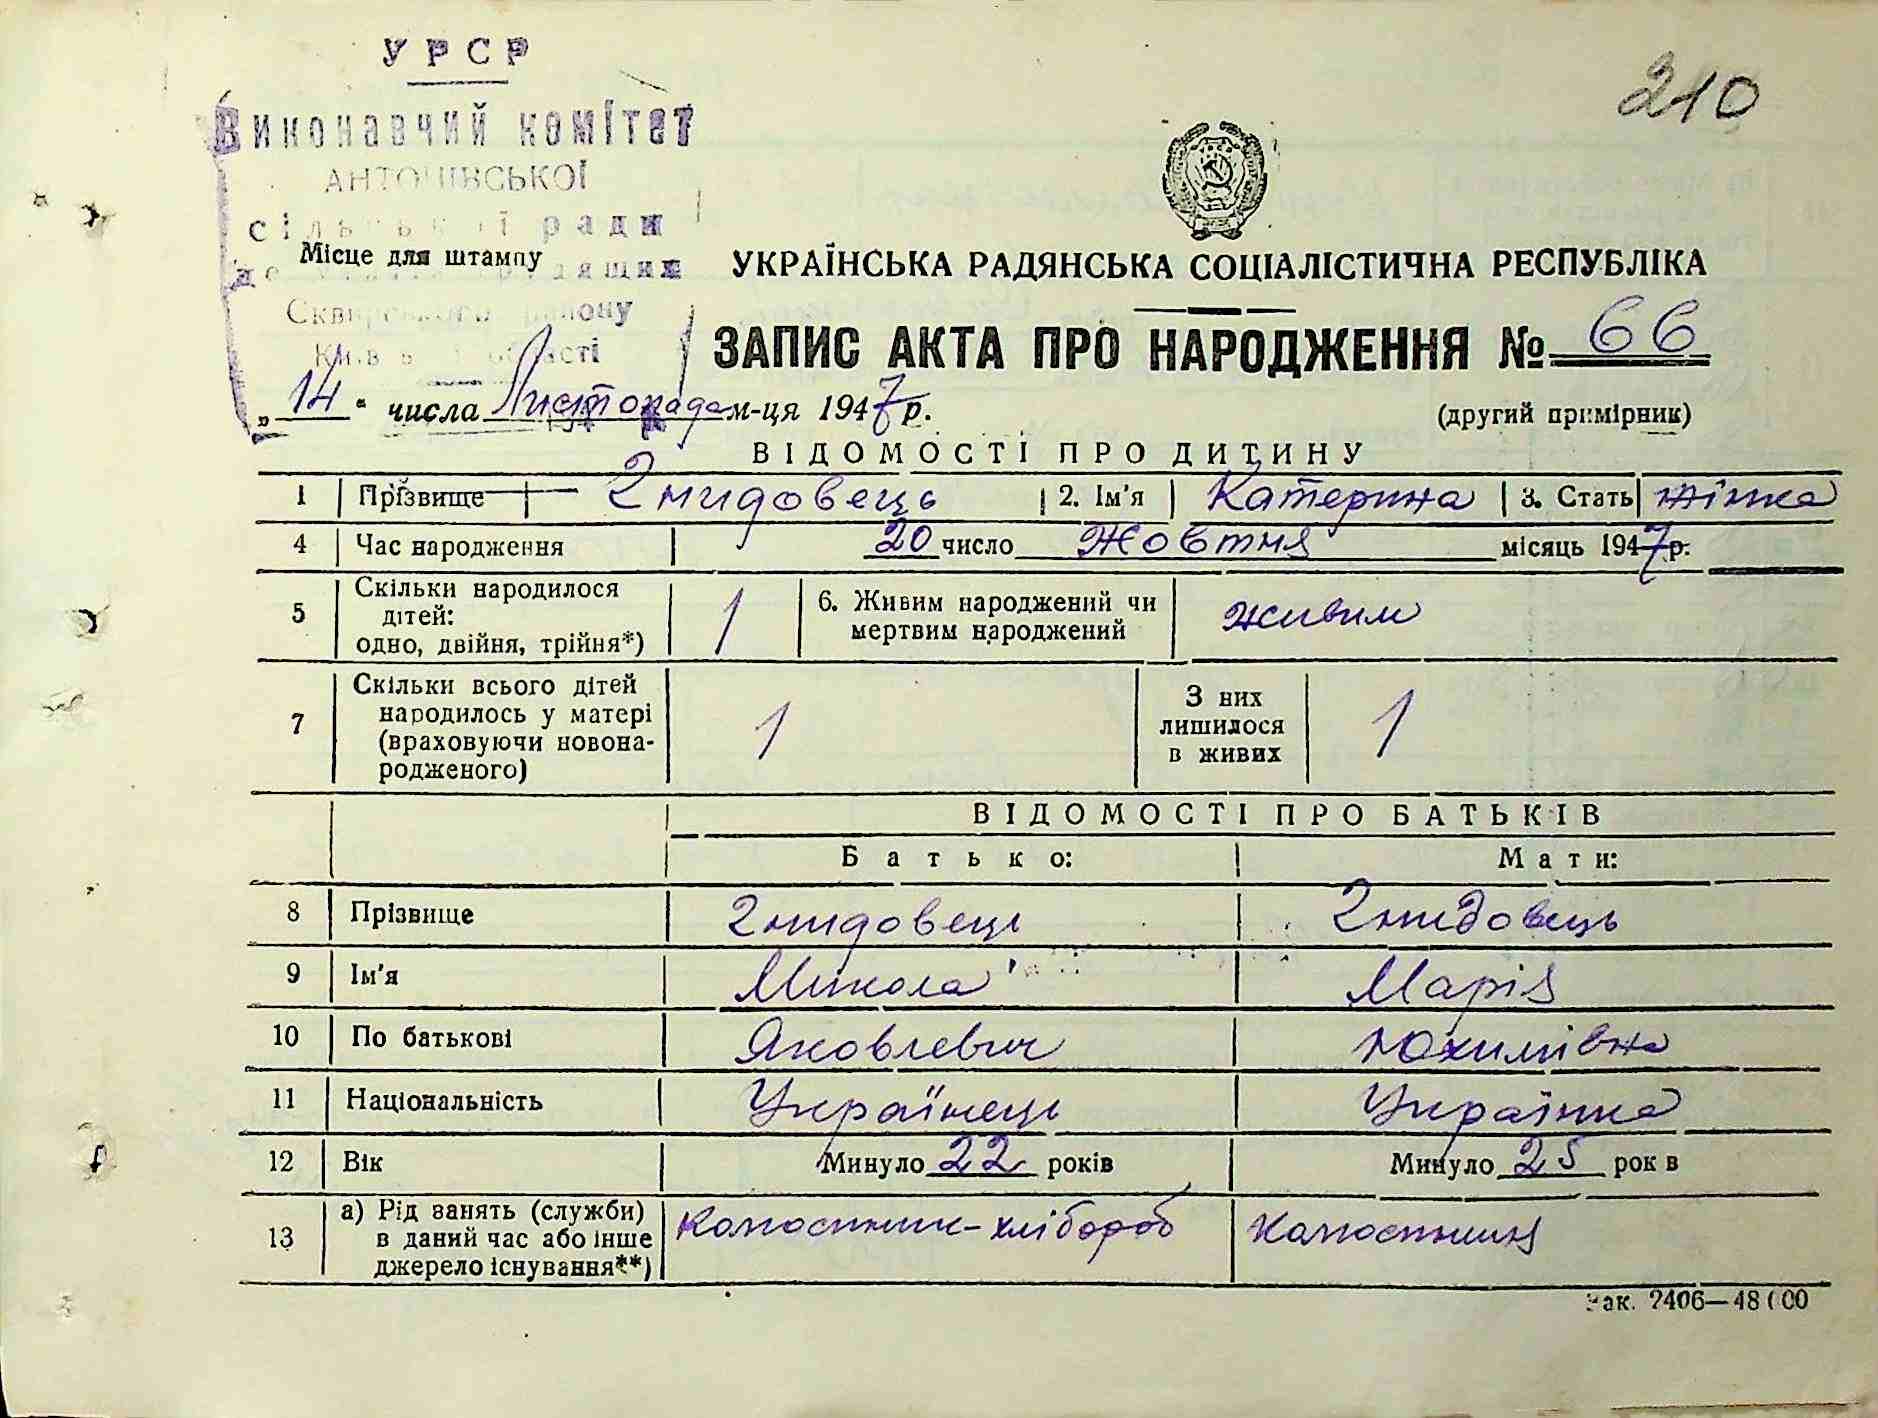 УРСР
210
Виконавчий комітет
АНТОНІВСЬКОЇ
сільської ради
Місце для штампу
УКРАЇНСЬКА РАДЯНСЬКА СОЦІАЛІСТИЧНА РЕСПУБЛІКА
Сквирського району
ЗАПИС АКТА ПРО НАРОДЖЕННЯ № 66
Київської області
„14“ числа Листопада м-ця 1947 р.
(другий примірник)
ВІДОМОСТІ ПРО ДИТИНУ
1 Прізвище Гнидовець 2. Ім'я Катерина 3. Стать жінка
4 Час народження 20 число Жовтня місяць 1947 р.
5 Скільки народилося дітей: одно, двійня, трійня*) 1 6. Живим народжений чи мертвим народжений живим
7 Скільки всього дітей народилось у матері (враховуючи новонародженого) 1 З них лишилося в живих 1
ВІДОМОСТІ ПРО БАТЬКІВ
Батько: Мати:
8 Прізвище Гнидовець Гнидовець
9 Ім'я Микола Марія
10 По батькові Яковлевич Юхимівна
11 Національність Українець Українка
12 Вік Минуло 22 років Минуло 25 рок в
13 а) Рід занять (служби) в даний час або інше джерело існування**) Колгоспник-хлібороб Колгоспниця
Зак. 2406—48000